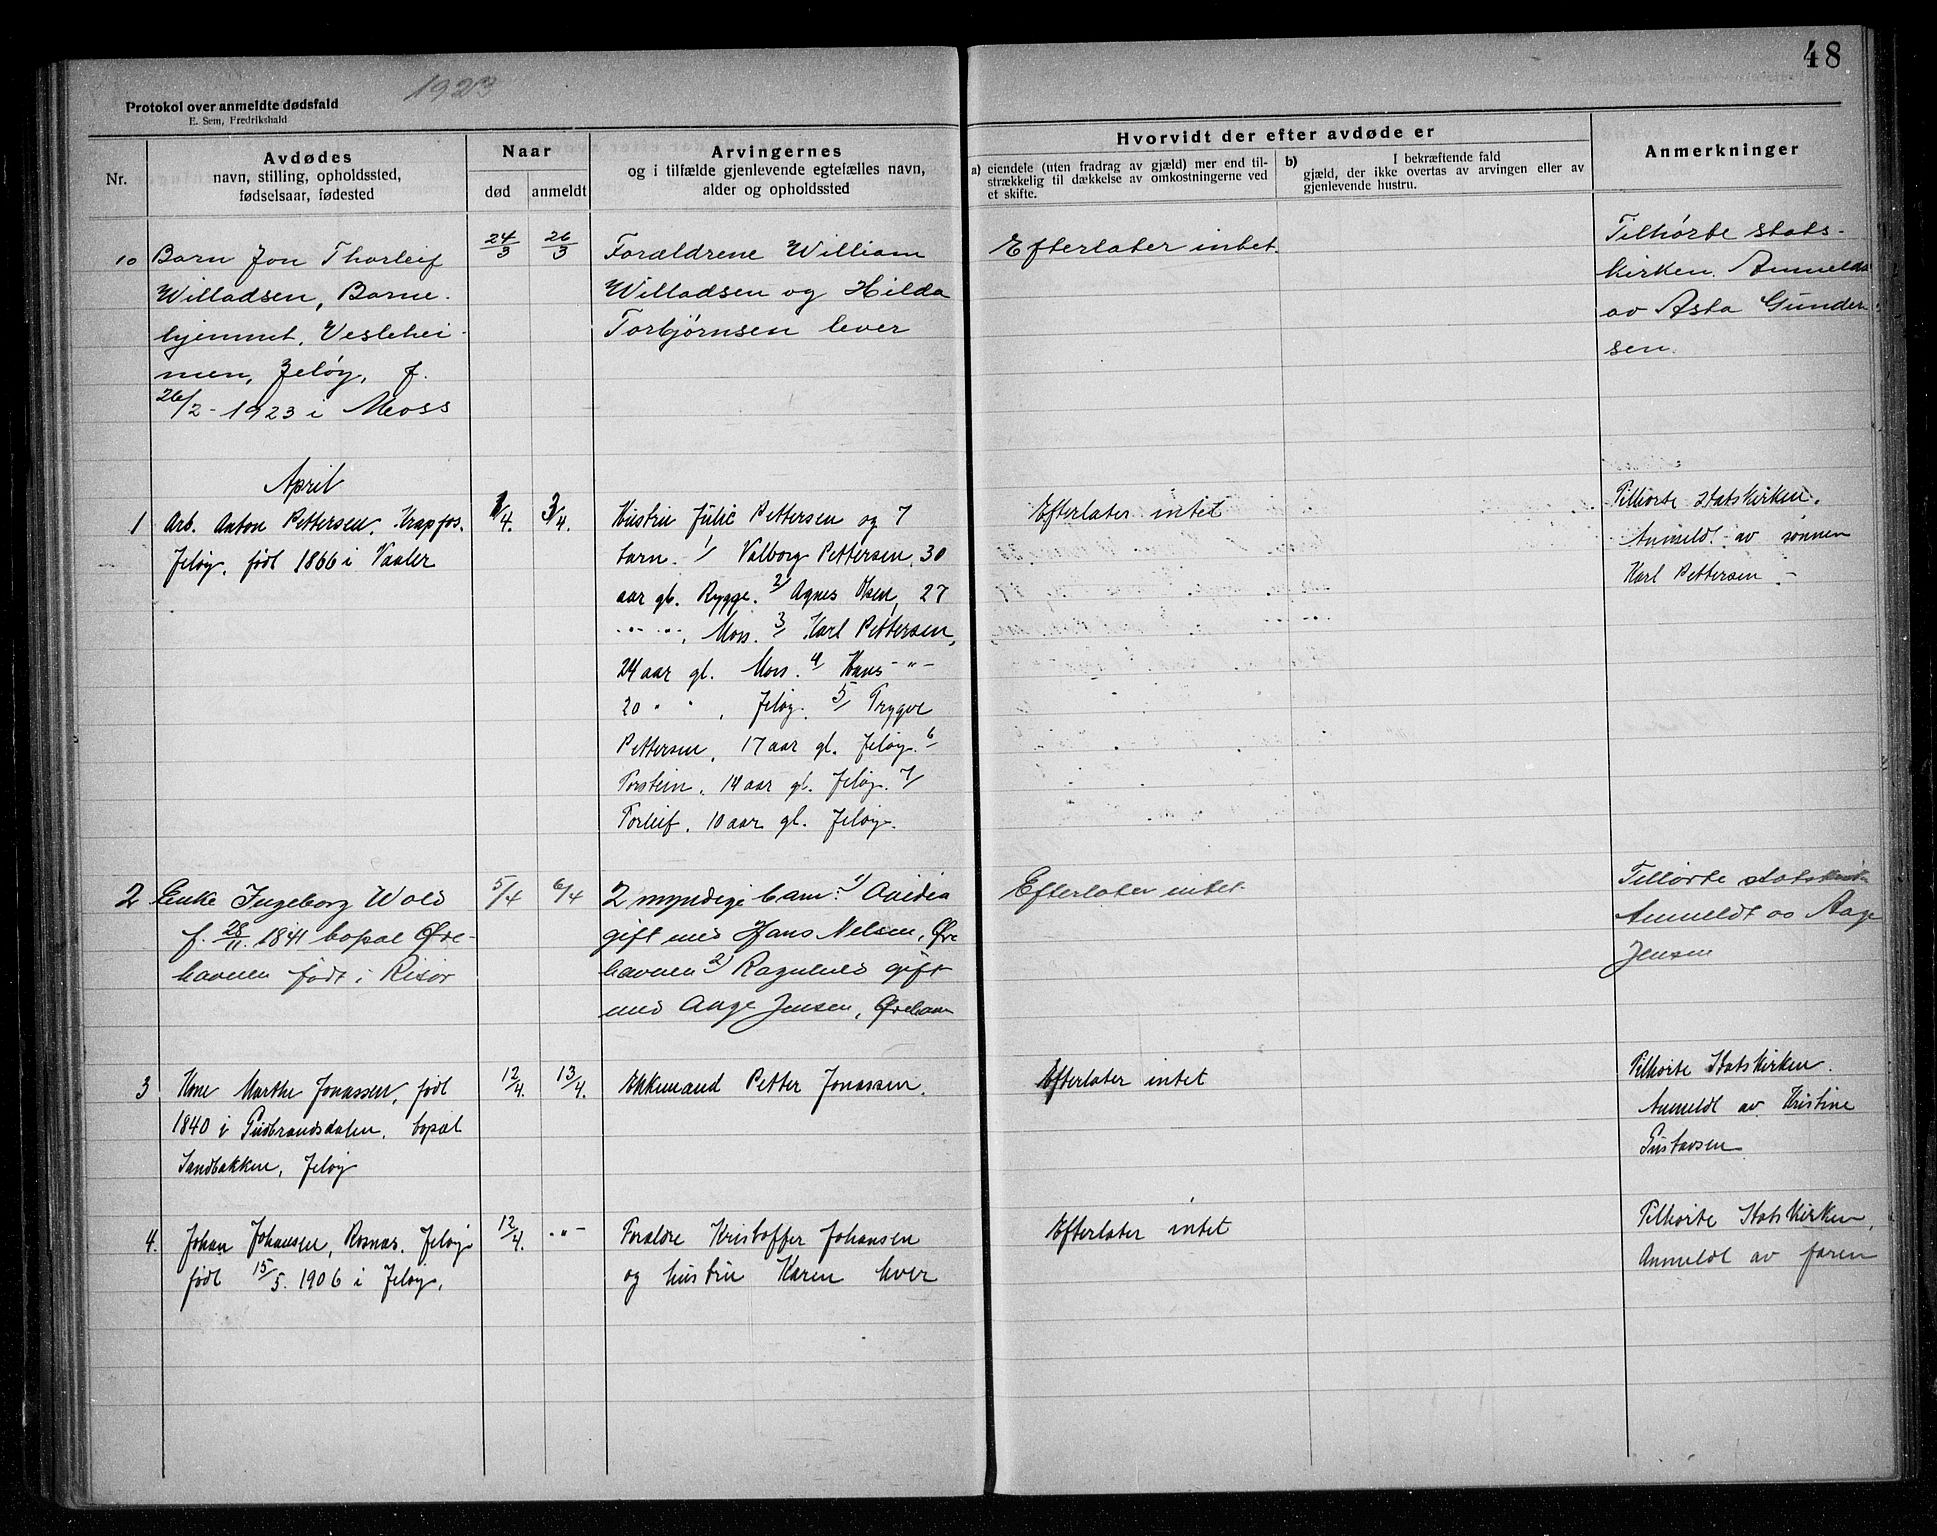 48
1923
Protokol over anmeldte dødsfald
E. Sem, Fredrikshald
Nr.
Avdødes
navn, stilling, opholdssted,
fødselsaar, fødested
Naar
død
anmeldt
Arvingernes
og i tilfælde gjenlevende egtefælles navn,
alder og opholdssted
Hvorvidt der efter avdøde er
a) eiendele (uten fradrag av gjæld) mer end til-
strækkelig til dækkelse av omkostningerne ved
et skifte.
b) I bekræftende fald
gjæld, der ikke overtas av arvingen eller av
gjenlevende hustru.
Anmerkninger
10
Barn Jon Thorleif
Willadsen, Barne-
hjemmet, Veslehei-
men, Jeløy, f.
26/2-1923 i Moss
24/3
26/3
Forældrene William
Willadsen og Hilda
Torbjørnsen lever
Efterlater intet.
Tilhørte stats-
kirken. Anmeldt
av Asta Gunder-
sen.
April
1
Arb. Anton Pettersen, Krapfos.
Jeløy, født 1866 i Vaaler
1/4.
3/4.
Hustru Julie Pettersen og 7
barn. 1/ Valborg Pettersen, 30
aar gl. Rygge. 2/ Agnes Olsen, 27
" " , Moss. 3/ Karl Pettersen,
24 aar gl. Moss. 4/ Hans - " -
20 " " , Jeløy. 5/ Trygve
Pettersen, 17 aar gl. Jeløy. 6/
Torstein, 14 aar gl. Jeløy. 7/
Torleif, 10 aar gl. Jeløy.
Efterlater intet
Tilhørte statskirken.
Anmeldt av sønnen
Karl Pettersen. -
2
Enke Ingeborg Wold
f. 28/11. 1841 bopæl Øre-
havnen født i Risør
5/4
6/4
2 myndige barn: 1)
gift med Hans Nelsen, Øre
havnen 2) Ragnhild gift
med Aage Jensen, Ørehavn
Efterlater intet
Tilhørte statskirk
Anmeldt av Aage
Jensen
3
Kone Marthe Jonassen, født
1840 i Gudbrandsdalen, bopæl
Sandbakken, Jeløy
12/4.
13/4.
Ekkemand Petter Jonassen.
Efterlater intet
Tilhørte Statskirken.
Anmeldt av Kristine
Gustavsen
4.
Johan Johansen, Rosnæs, Jeløy
født 15/5. 1906 i Jeløy.
12/4.
- " -
Foraldre Kristoffer Johansen
og hustru Karen lever
Efterlater intet
Tilhørte Statskirken,
Anmeldt av faren